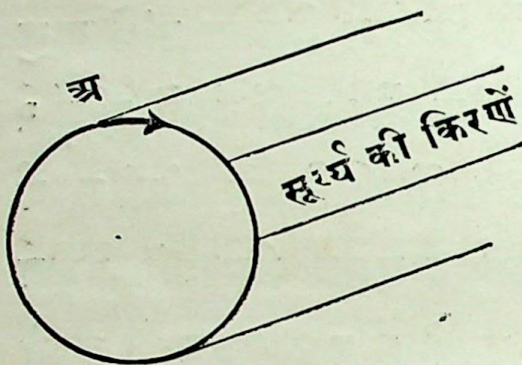 अ
सूर्य की किरणें